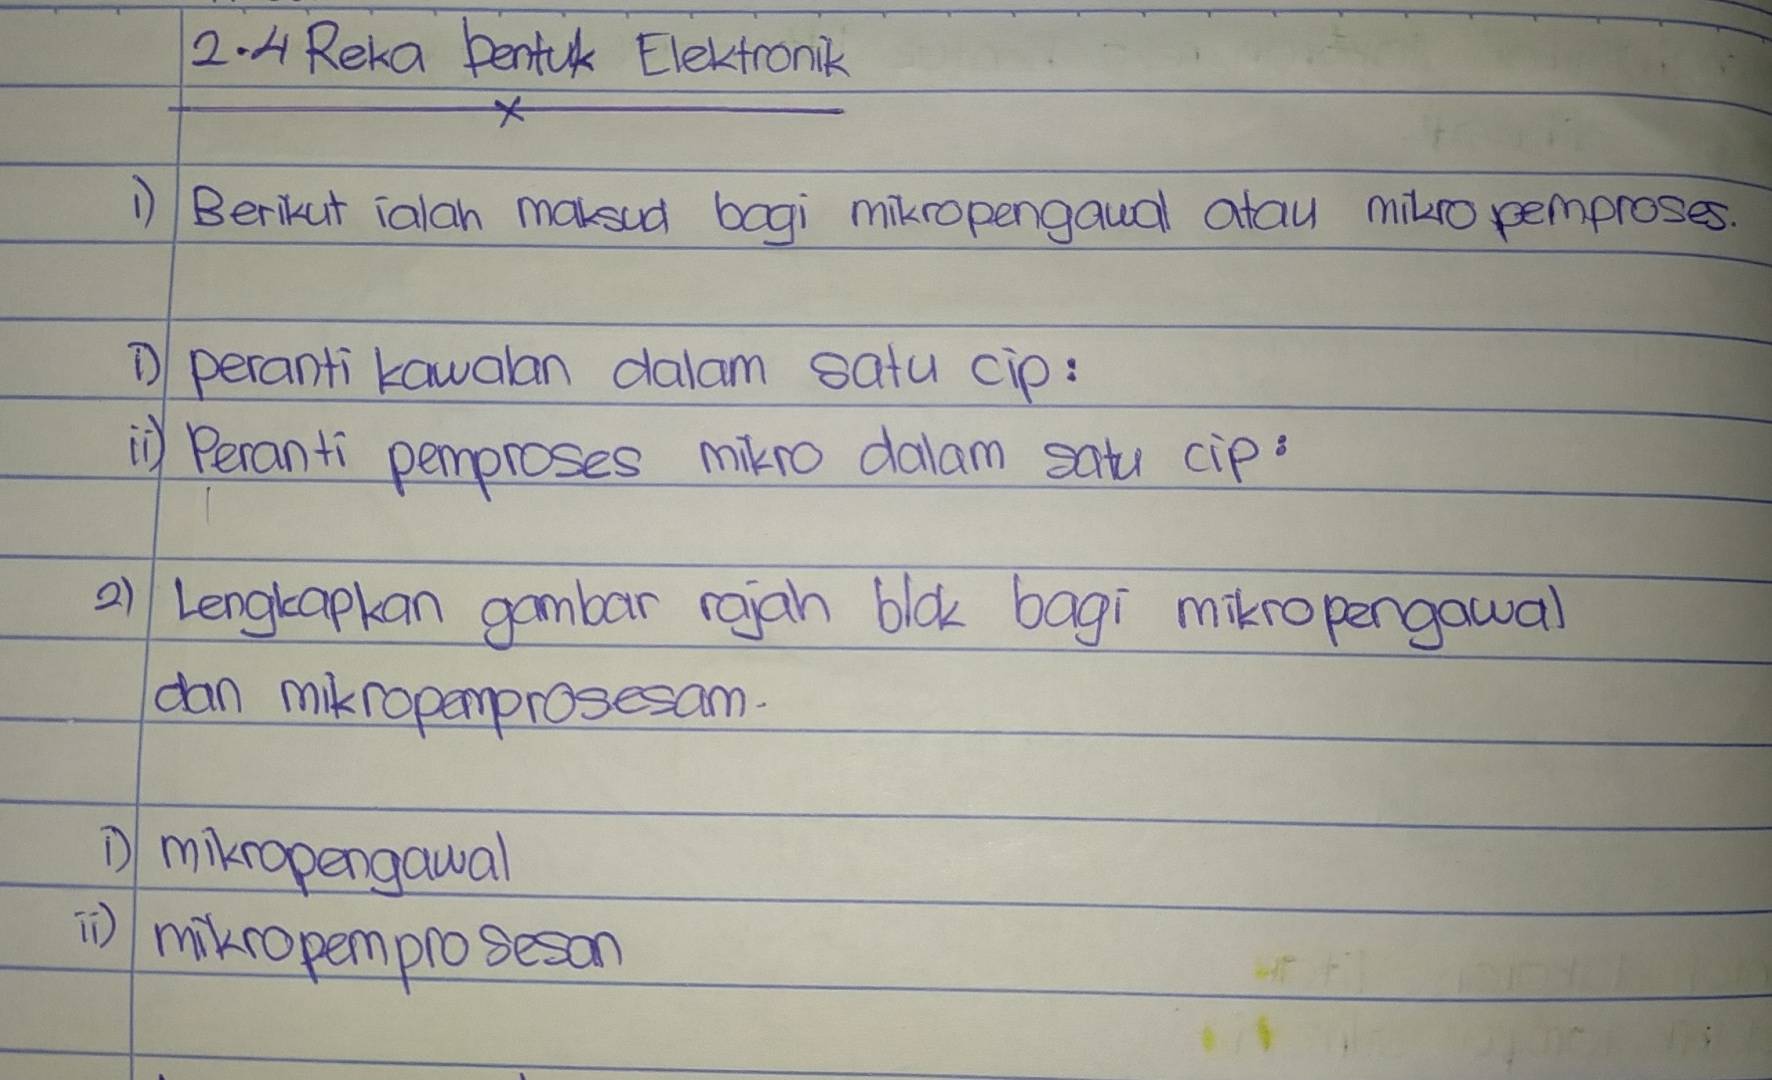 2.4 Reka bentuk Elektronik
1) Berikut ialah maksud bagi mikropengawal atau mikropemproses.
i) peranti kawalan dalam satu cip:
ii) Peranti pemproses mikro dalam satu cip:
2) Lengkapkan gambar rajah blok bagi mikropengawal
dan mikropemprosesam.
i) mikropengawal
ii) mikropemprosesan